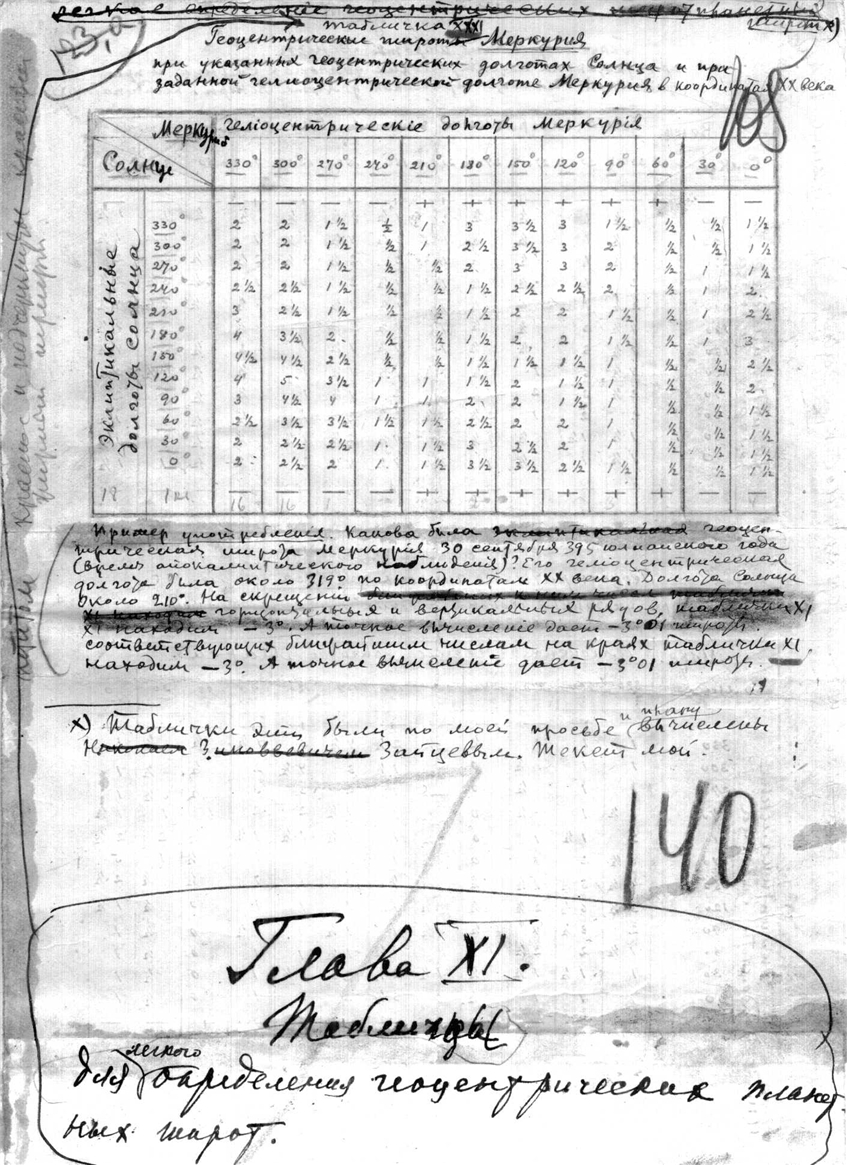 легкое определение геоцентрических
широт х)
23,а
табличка XXXI
Геоцентрические широты Меркурия
при указанных геоцентрических долготах Солнца и при
заданной гелиоцентрической долготе Меркурия в координатах XX века
105
Меркурий геліоцентрическіе долготы Меркурія
Солнце 330° 300° 270° 240° 210° 180° 150° 120° 90° 60° 30° 0°
— — — — + + + + + + — —
Эклиптикальные
долготы Солнца
330° 2 2 1½ ½ 1 3 3½ 3 1½ ½ ½ 1½
300° 2 2 1½ ½ 1 2½ 3½ 3 2 ½ ½ 1½
270° 2 2 1½ ½ ½ 2 3 3 2 ½ 1 1½
240° 2½ 2½ 1½ ½ ½ 1½ 2½ 2½ 2 ½ 1 2
210° 3 2½ 1½ ½ ½ 1½ 2 2 1½ ½ 1 2½
180° 4 3½ 2 ½ ½ 1½ 2 2 1½ ½ 1 3
150° 4½ 4½ 2½ ½ ½ 1½ 1½ 1½ 1 ½ ½ 2½
120° 4 5 3½ 1 1 1½ 2 1½ 1 ½ ½ 2
90° 3 4½ 4 1 1 2 2 1½ 1 ½ ½ 1½
60° 2½ 3½ 3½ 1½ 1½ 2½ 2 2 1 ½ ½ 1½
30° 2 2½ 2½ 1 1½ 3 2½ 2 1 ½ ½ 1½
0° 2 2½ 2 1 1 3½ 3½ 2½ 1½ ½ ½ 1½
— — — — + + + + + + — —
18 16 16
Пример употребленія. Какова была эклиптикальная геоцен-
трическая широта Меркурія 30 сентября 395 юлианского года
(время апокалиптического наблюденія)? Его гелиоцентрическая
долгота была около 319° по координатам XX века. Долгота Солнца
около 210°. На скрещении
XI находим горизонтальных и вертикальных рядов, таблички XI
XI находим —3°. А точное вычисленіе дает —3°01 широты.
соответствующих ближайшим числам на краях таблички XI,
находим —3°. А точное вычисленіе дает —3°01 широты.
х) Таблички эти были по моей просьбе вычислены
Зиновьевичем Зайцевым. Текст мой.
140
Глава XI.
Таблицы
легкого
для определения геоцентрических планет-
ных широт.